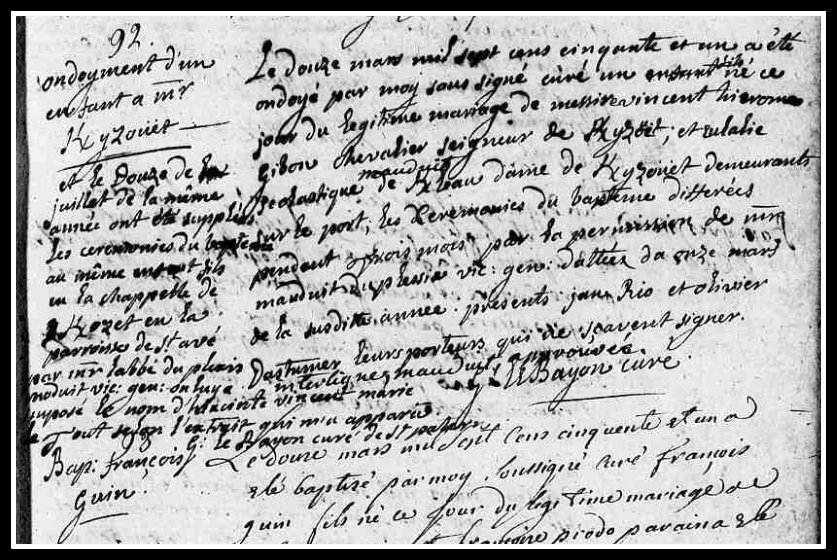 92.
ondoyment d'un
enfant a mr
Kyzoüet
et le douze de
juillet de la même
année ont été supplées
les ceremonies du baptême
au même enfant fils
en la chappelle de
Kozet en la
parroisse de st avé
par mr l'abbé du plessis
moduit vic: gen: on luy a
suposé le nom d'hiacinte vincent marie
le tout selon l'extrait qui m'a apparu
G: le Bayon curé de st patern
Le douze mars mil sept cens cinquante et un a été
ondoyé par moy sous signé curé un enfant né ce
jour du legitime mariage de messire vincent hierome
Gibon chevalier seigneur de Kyzöet; et eulalie
scolastique de mauduit dame de Kyzoüet demeurants
sur le port, les Ceremonies du baptême differées
pendent trois mois par la permission de
mauduit du plessis vic: gen: dattée du onze mars
de la susditte année. presents: jan Rio et olivier
Dastumer leurs porteurs qui ne sçavent signer.
interligne mauduit approuvée
Le Bayon curé.
93
Bap: françois
Guin.
Le douze mars mil sept cens cinquente et un a
eté baptisé par moy soussigné curé françois
guin fils né ce jour du legitime mariage de
françoise piodo paraina eté